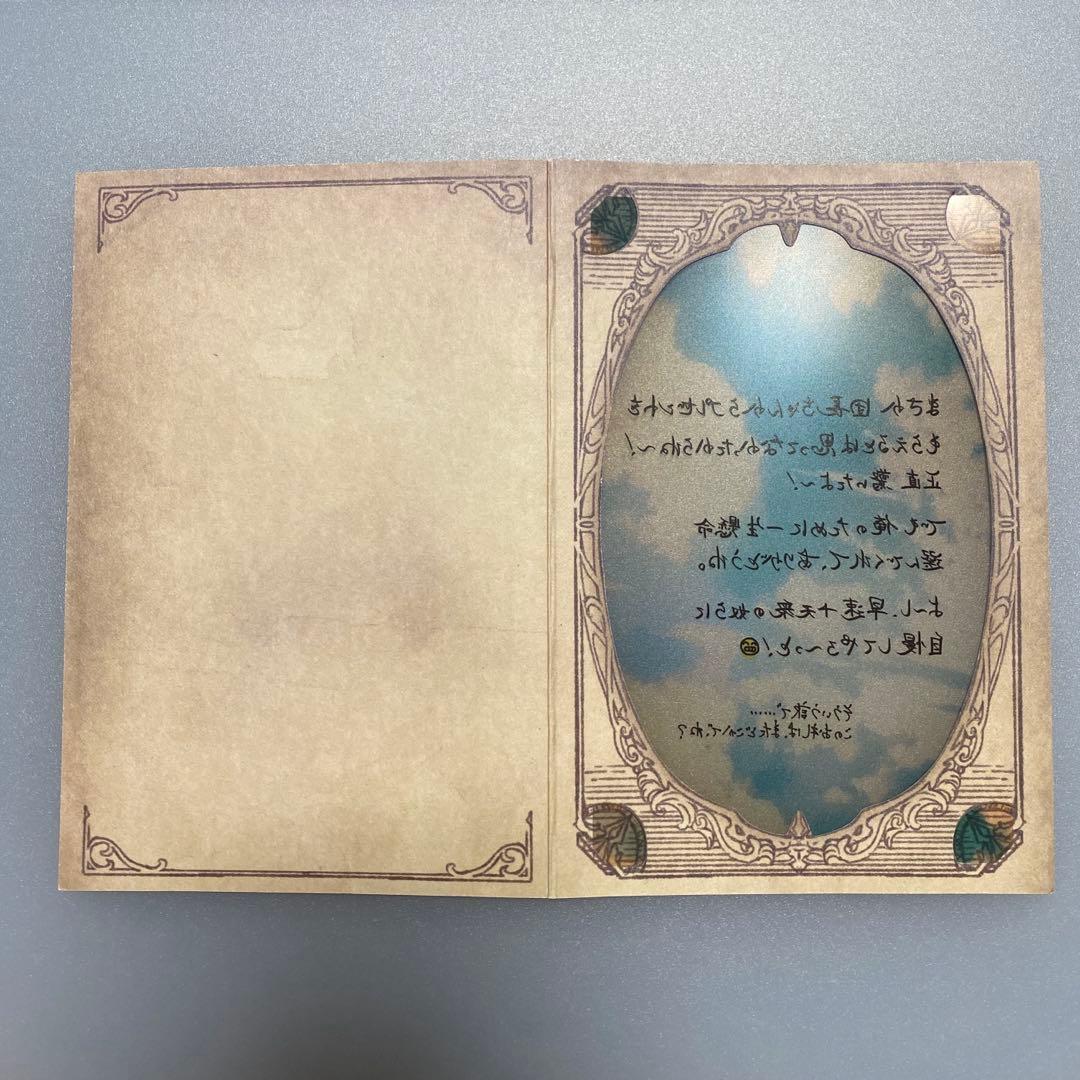 まさか団長ちゃんからプレゼントを
もらえるとは思ってなかったからね〜！
正直驚いたよ〜！
でも俺のために一生懸命
選んでくれて、ありがとうね。
よ〜し、早速十天衆の奴らに
自慢してやろ〜っと！
そういう訳で……
このお礼は、またどこかで、ね？